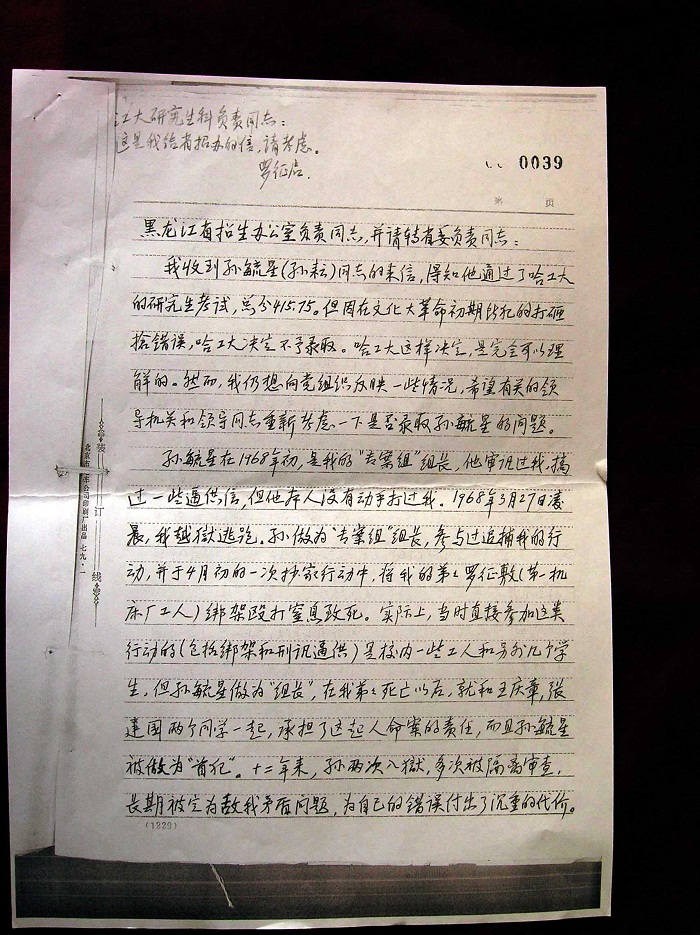 江大研究生科负责同志:
这是我给省招办的信,请考虑。
罗征启.
0039
第 页
黑龙江省招生办公室负责同志,并请转省委负责同志:
我收到孙毓星(孙耘)同志的来信,得知他通过了哈工大
的研究生考试,总分415.75。但因在文化大革命初期所犯的打砸
抢错误,哈工大决定不予录取。哈工大这样决定,是完全可以理
解的。然而,我仍想向党组织反映一些情况,希望有关的领
导机关和领导同志重新考虑一下是否录取孙毓星的问题。
孙毓星在1968年初,是我的"专案组"组长,他审讯过我,搞
过一些逼供信,但他本人没有动手打过我。1968年3月27日凌
晨,我越狱逃跑。孙做为"专案组"组长,参与过追捕我的行
动,并于4月初的一次抄家行动中,将我的弟弟罗征敷(第一机
床厂工人)绑架殴打窒息致死。实际上,当时直接参加这类
行动的(包括绑架和刑讯逼供)是校内一些工人和另外几个学
生,但孙毓星做为"组长",在我弟弟死亡以后,就和王庆章,张
建国两个同学一起,承担了这起人命案的责任,而且孙毓星
被做为"首犯"。十二年来,孙两次入狱,多次被隔离审查,
长期被定为敌我矛盾问题,为自己的错误付出了沉重的代价。
(1229)
装
订
线
北京市 公司印刷厂出品 七九·一